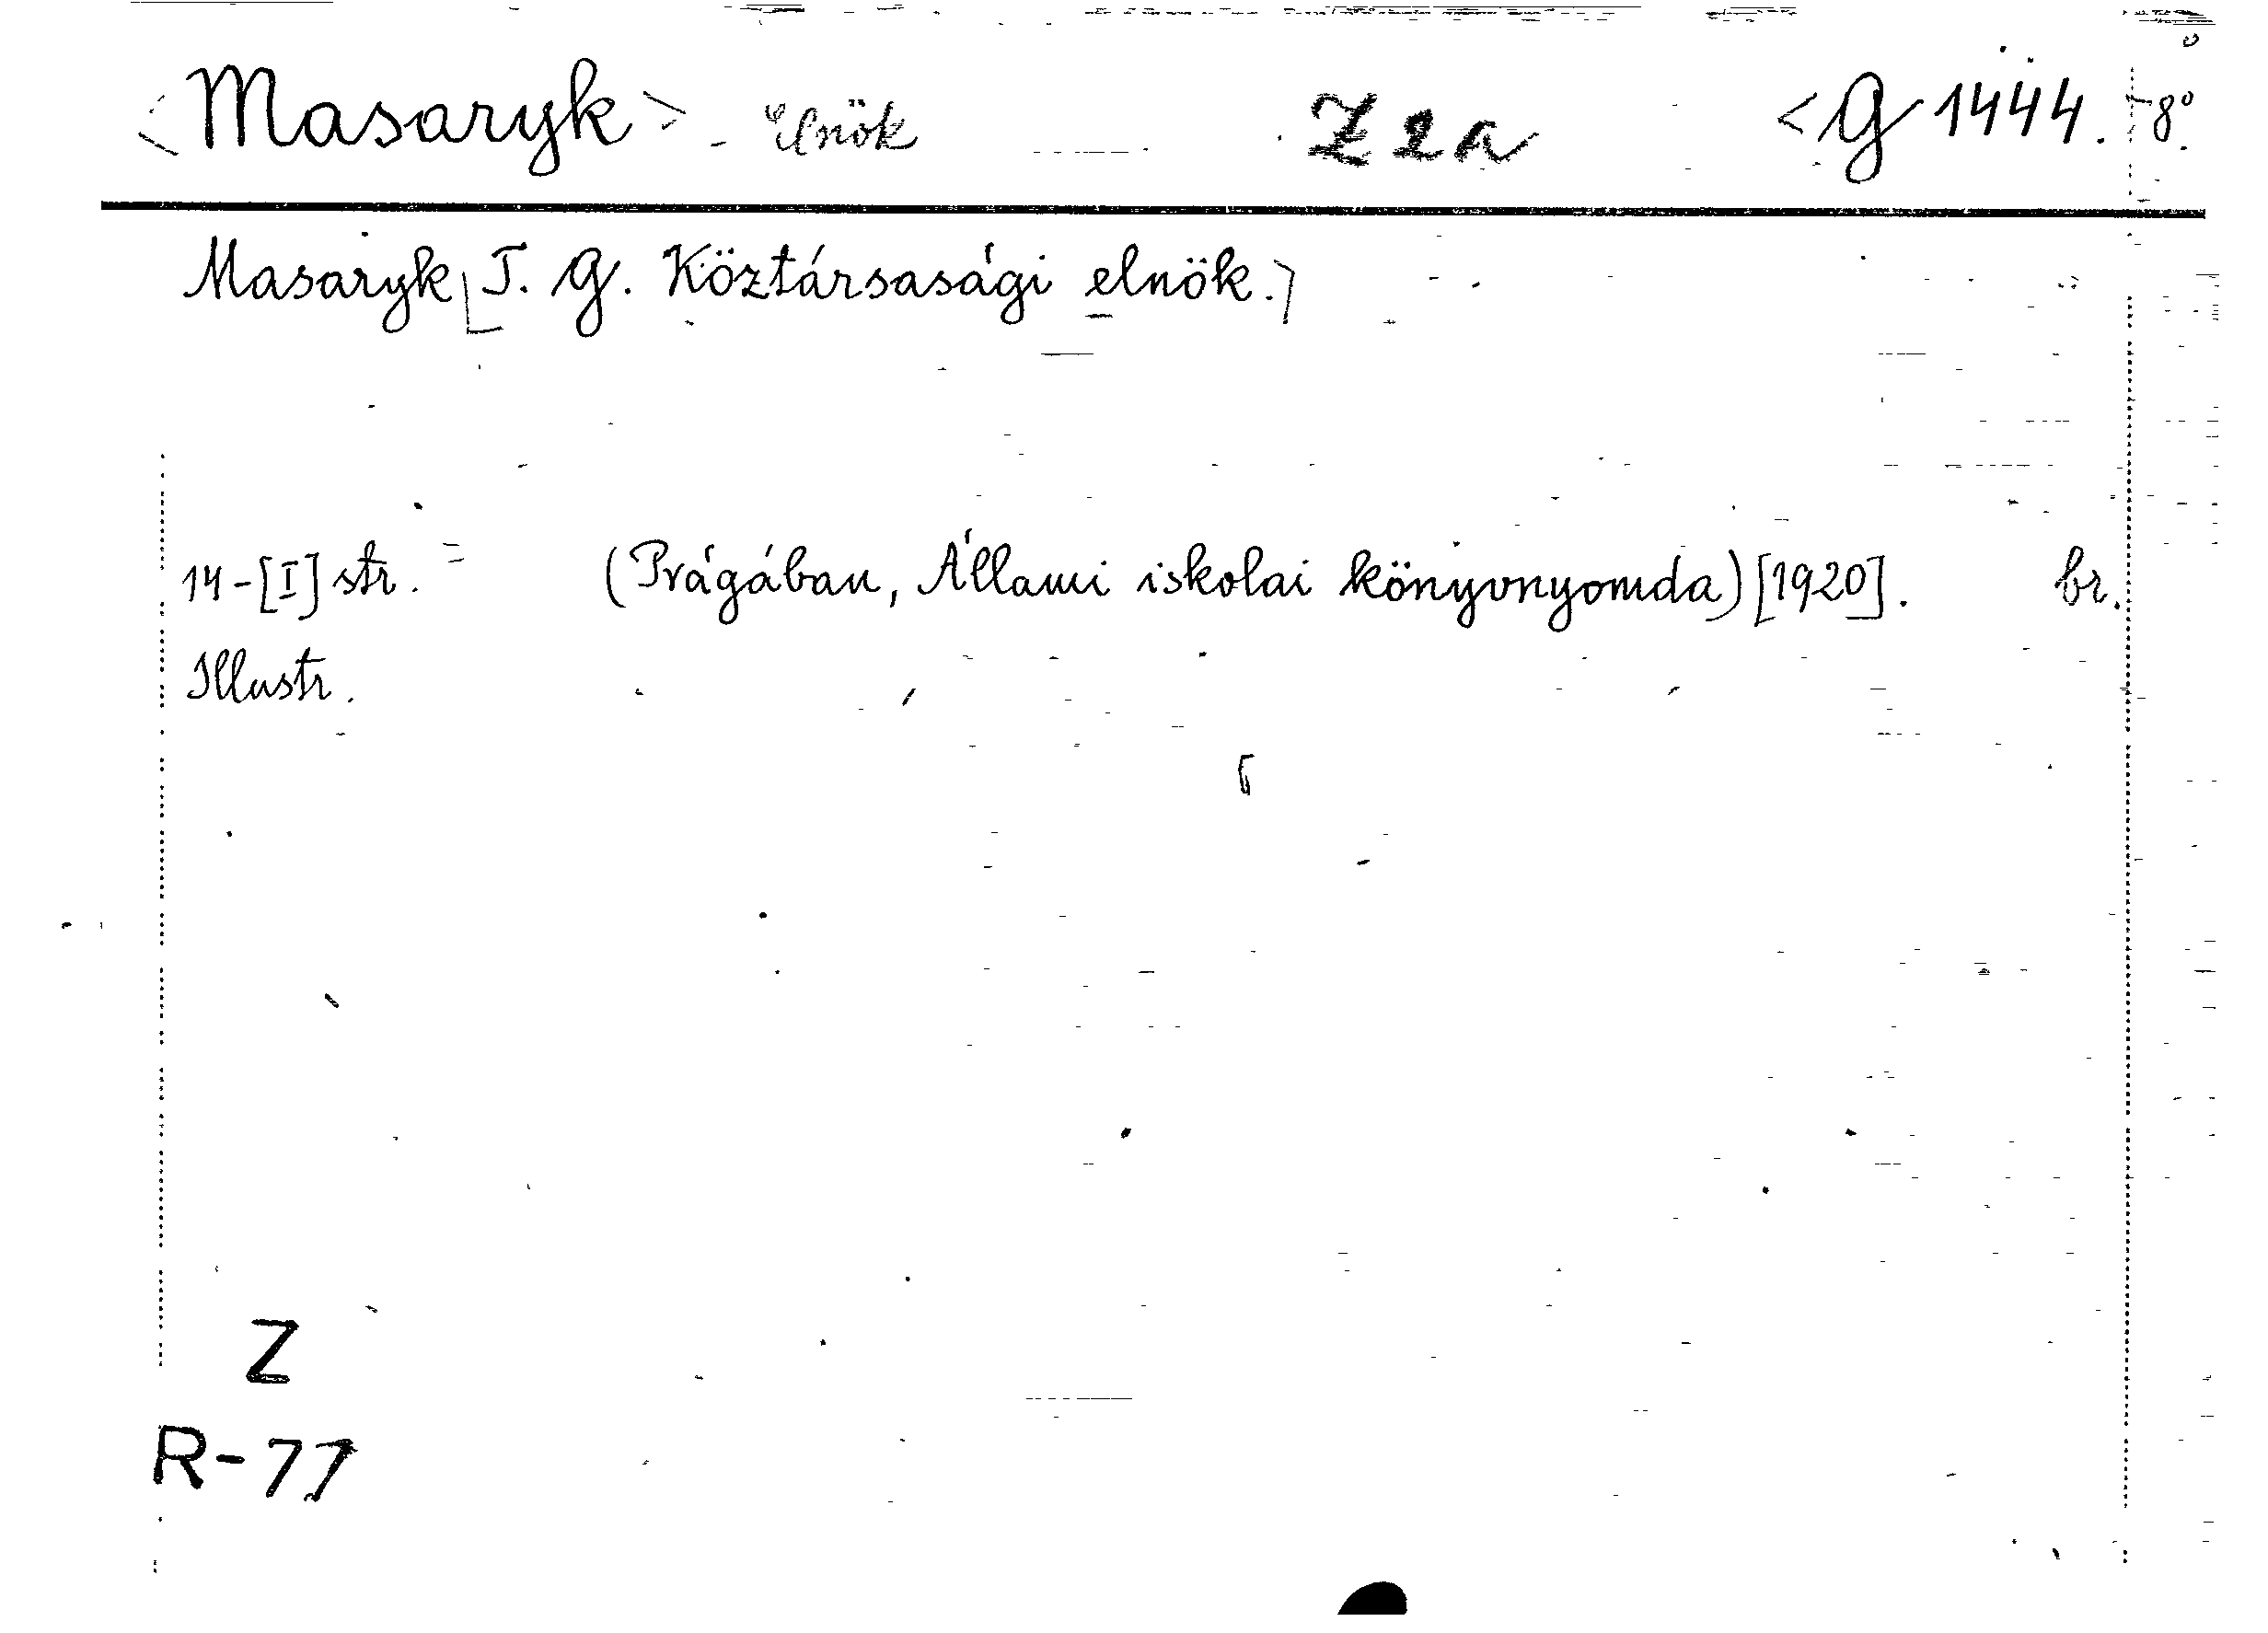 <Masaryk> elnök Z2a <G 1444. 8°
Masaryk [T. G. Köztársasági elnök.]
14-[I] str. (Prágában, Állami iskolai könyvnyomda) [1920]. br.
Illustr.
Z
R-77